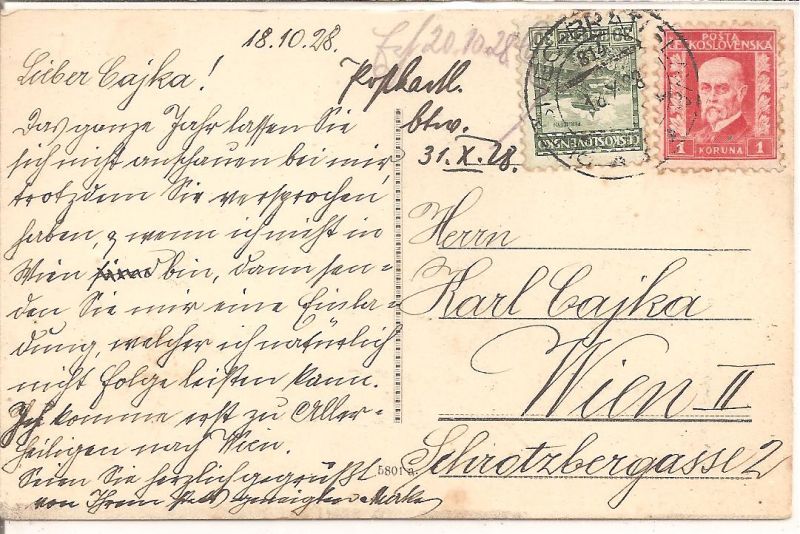 18.10.28.
Lieber Cajka!
Das ganze Jahr lassen Sie
sich nicht anschauen bei mir
trotzdem Sie versprochen
haben, & wenn ich nicht in
Wien bin, dann sen-
den Sie mir eine Einla-
dung, welcher ich natürlich
nicht Folge leisten kann.
Ich komme erst zu Aller-
heiligen nach Wien.
Seien Sie herzlich gegrüßt
von Ihrem stets geneigten
20.10.28
btw.
31.X.28.
ČESKOSLOVENSKO
POŠTA
ČESKOSLOVENSKÁ
1 KORUNA 1
Herrn
Karl Cajka
Wien II
Schrotzbergasse 2
5801 a.